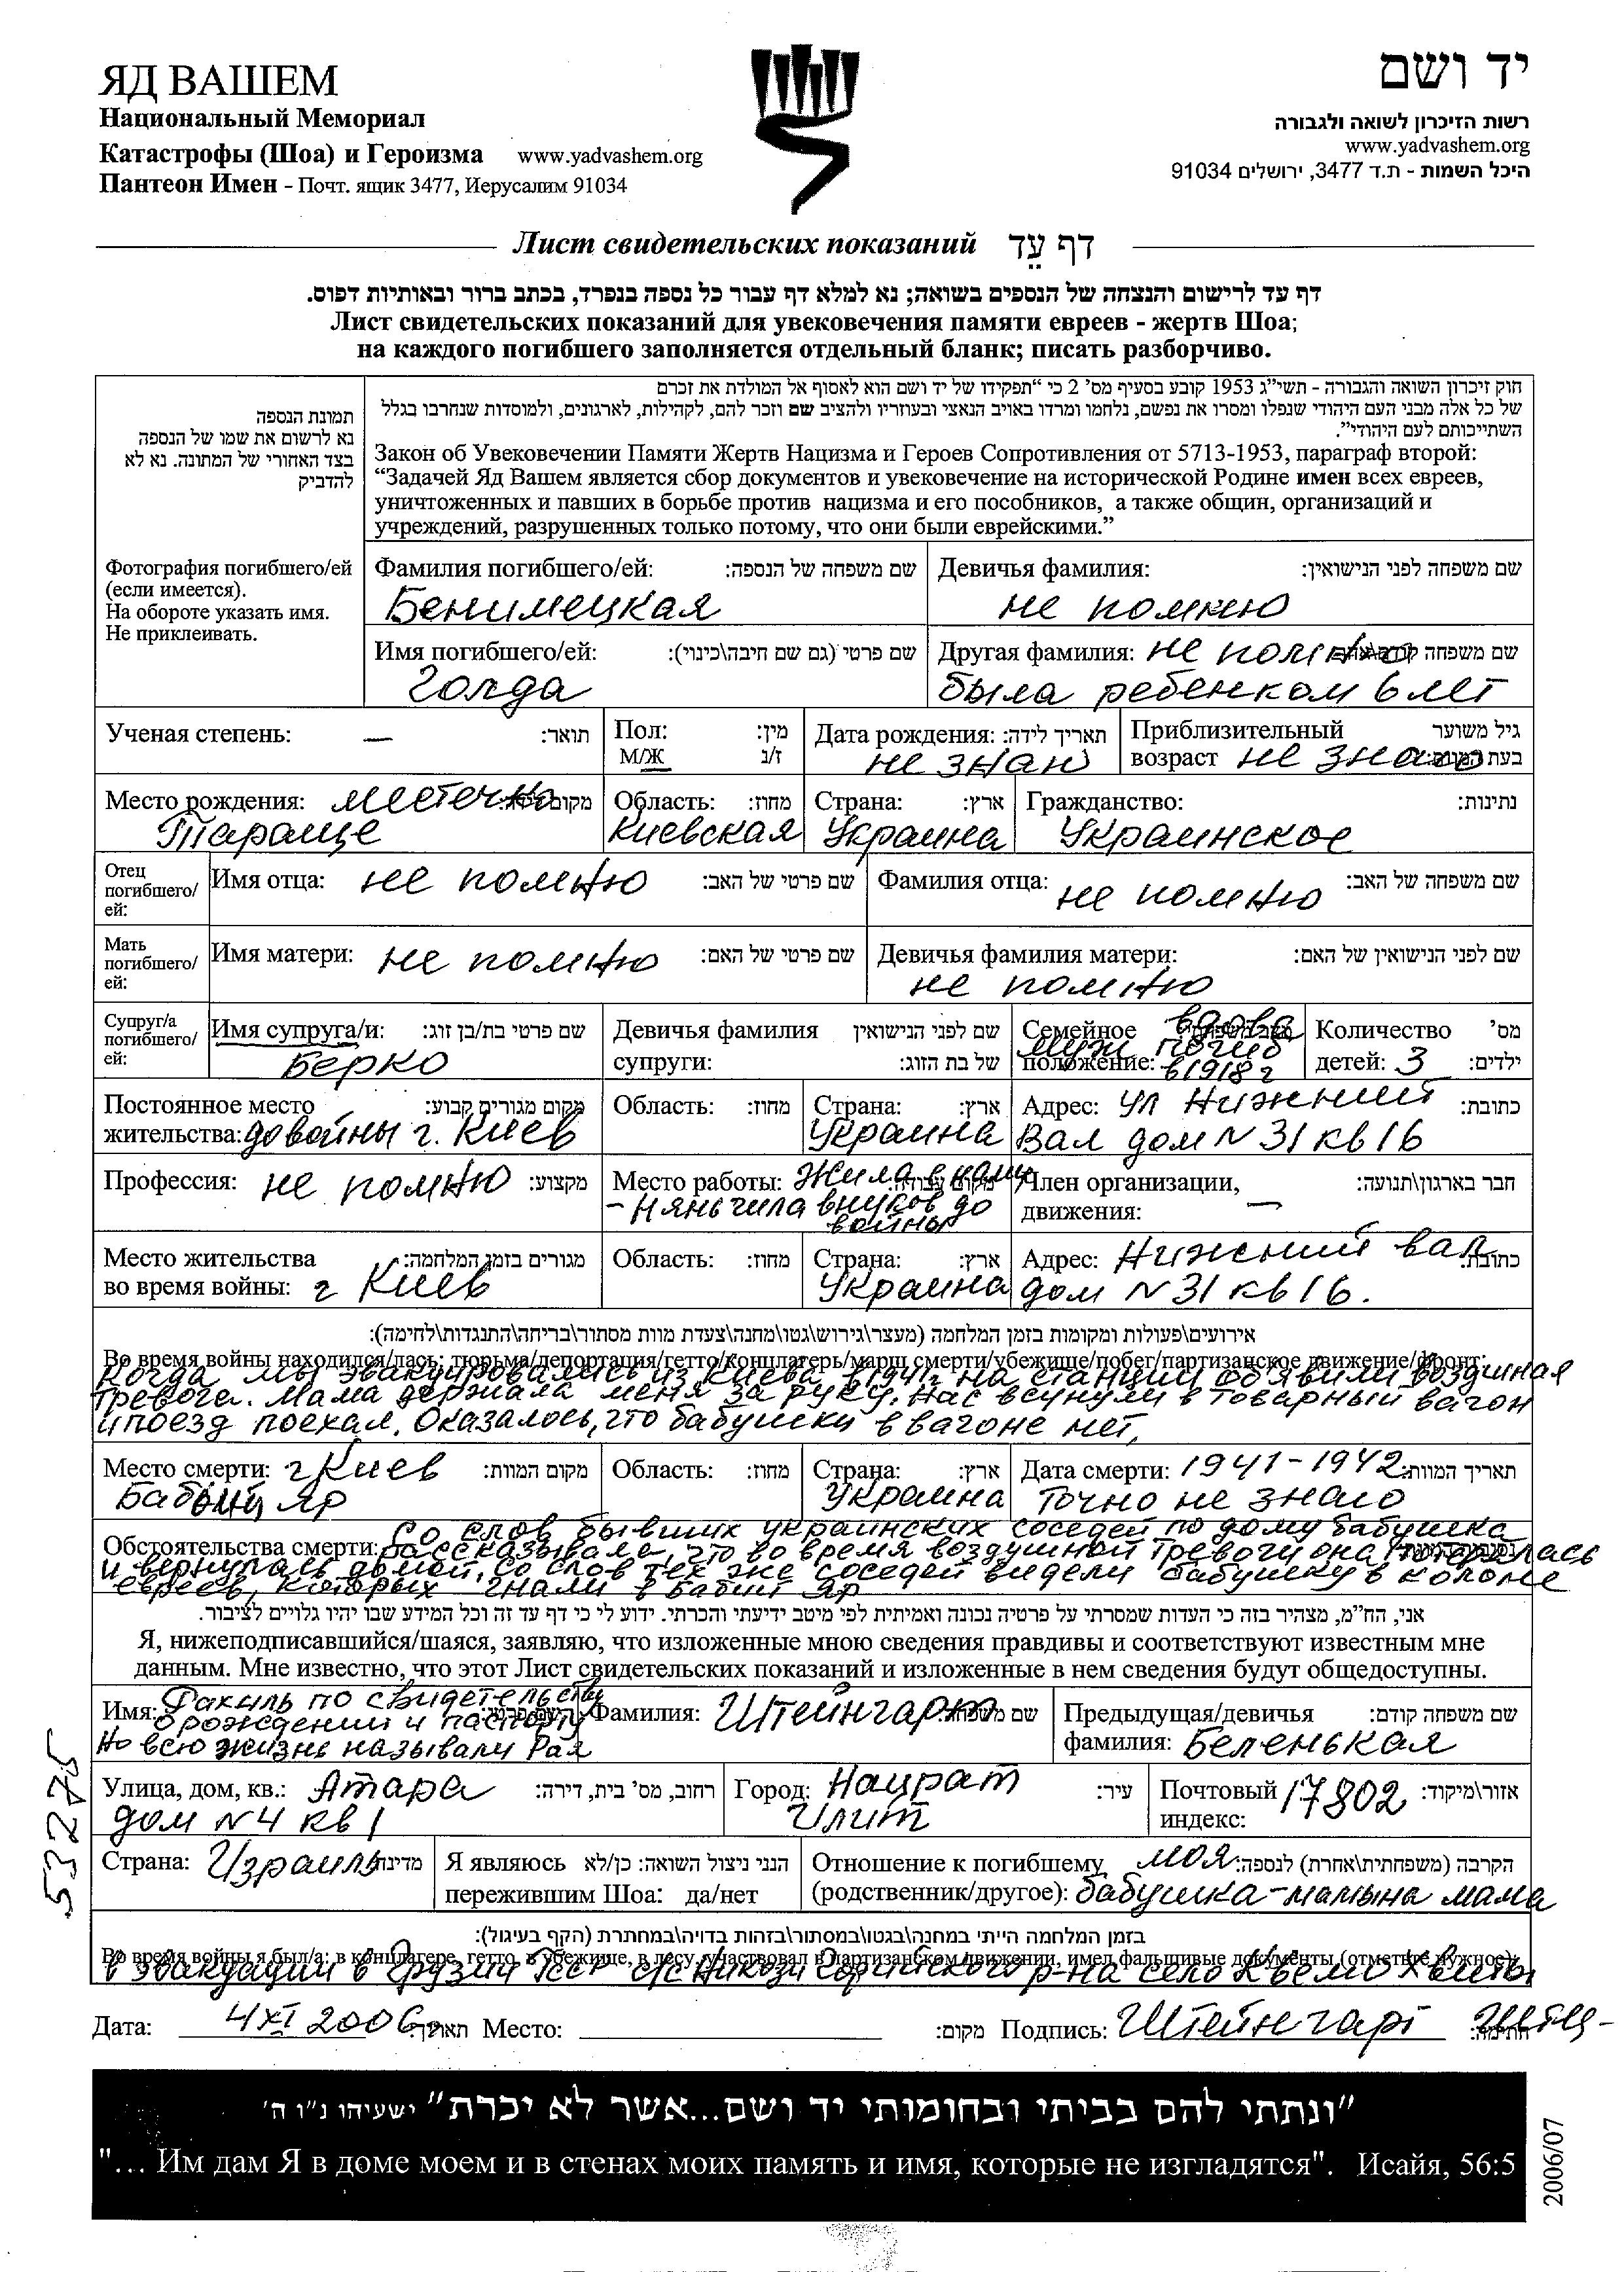 ЯД ВАШЕМ
Национальный Мемориал
Катастрофы (Шоа) и Героизма www.yadvashem.org
Пантеон Имен - Почт. ящик 3477, Иерусалим 91034
יד ושם
רשות הזיכרון לשואה ולגבורה
www.yadvashem.org
היכל השמות - ת.ד 3477, ירושלים 91034
Лист свидетельских показаний דף עֵד
דף עד לרישום והנצחה של הנספים בשואה; נא למלא דף עבור כל נספה בנפרד, בכתב ברור ובאותיות דפוס.
Лист свидетельских показаний для увековечения памяти евреев - жертв Шоа;
на каждого погибшего заполняется отдельный бланк; писать разборчиво.
תמונת הנספה
נא לרשום את שמו של הנספה
בצד האחורי של המתונה. נא לא
להדביק
Фотография погибшего/ей
(если имеется).
На обороте указать имя.
Не приклеивать.
חוק זיכרון השואה והגבורה - תשי"ג 1953 קובע בסעיף מס' 2 כי "תפקידו של יד ושם הוא לאסוף אל המולדת את זכרם
של כל אלה מבני העם היהודי שנפלו ומסרו את נפשם, נלחמו ומרדו באויב הנאצי ובעוזריו ולהציב שם וזכר להם, לקהילות, לארגונים, ולמוסדות שנחרבו בגלל
השתייכותם לעם היהודי".
Закон об Увековечении Памяти Жертв Нацизма и Героев Сопротивления от 5713-1953, параграф второй:
“Задачей Яд Вашем является сбор документов и увековечение на исторической Родине имен всех евреев,
уничтоженных и павших в борьбе против нацизма и его пособников, а также общин, организаций и
учреждений, разрушенных только потому, что они были еврейскими.”
Фамилия погибшего/ей: שם משפחה של הנספה: Девичья фамилия: שם משפחה לפני הנישואין:
Бенимецкая не помню
Имя погибшего/ей: שם פרטי (גם שם חיבה\כינוי): Другая фамилия: не помню שם משפחה
Голда была ребенком 6 лет
Ученая степень: — תואר: Пол: מין: Дата рождения: תאריך לידה: Приблизительный גיל משוער
М/Ж ז/נ не знаю возраст не знаю בעת
Место рождения: местечко מקום Область: מחוז: Страна: ארץ: Гражданство: נתינות:
Тараще Киевская Украина Украинское
Отец
погибшего/
ей:
Имя отца: не помню שם פרטי של האב: Фамилия отца: не помню שם משפחה של האב:
Мать
погибшего/
ей:
Имя матери: не помню שם פרטי של האם: Девичья фамилия матери: שם לפני הנישואין של האם:
не помню
Супруг/а
погибшего/
ей:
Имя супруга/и: שם פרטי בת/בן זוג: Девичья фамилия שם לפני הנישואין Семейное вдова Количество מס'
Берко супруги: של בת הזוג: муж погиб
положение: в 1918 г детей: 3 ילדים:
Постоянное место מקום מגורים קבוע: Область: מחוז: Страна: ארץ: Адрес: ул Нижний כתובת:
жительства: до войны г. Киев Украина Вал дом N 31 кв 16
Профессия: не помню מקצוע: Место работы: Жила с нами Член организации, חבר בארגון\תנועה:
- Няньчила внуков до движения: —
войны
Место жительства מגורים בזמן המלחמה: Область: מחוז: Страна: ארץ: Адрес: Нижний вал כתובת:
во время войны: г Киев Украина дом N 31 кв 16.
אירועים\פעולות ומקומות בזמן המלחמה (מעצר\גירוש\גטו\מחנה\צעדת מוות מסתור\בריחה\התנגדות\לחימה):
Во время войны находился/лась: тюрьма/депортация/гетто/концлагерь/марш смерти/убежище/побег/партизанское движение/фронт:
Когда мы эвакуировались из Киева в 1941г на станции объявили воздушная
тревога. Мама держала меня за руку. Нас всунули в товарный вагон
и поезд поехал. Оказалось, что бабушки в вагоне нет,
Место смерти: г Киев מקום המוות: Область: מחוז: Страна: ארץ: Дата смерти: 1941-1942 תאריך המוות:
Бабий Яр Украина Точно не знаю
Со слов бывших украинских соседей по дому бабушка
Обстоятельства смерти: рассказывала, что во время воздушной тревоги она потерялась
и вернулась домой. Со слов тех же соседей видели бабушку в колоне
евреев, которых гнали в Бабий Яр
אני, הח"מ, מצהיר בזה כי העדות שמסרתי על פרטיה נכונה ואמיתית לפי מיטב ידיעתי והכרתי. ידוע לי כי דף עד זה וכל המידע שבו יהיו גלויים לציבור.
Я, нижеподписавшийся/шаяся, заявляю, что изложенные мною сведения правдивы и соответствуют известным мне
данным. Мне известно, что этот Лист свидетельских показаний и изложенные в нем сведения будут общедоступны.
Имя: Рахиль по свидетельству Фамилия: Штейнгарт שם משפחה: Предыдущая/девичья שם משפחה קודם:
о рождении и паспорту фамилия: Беленькая
Но всю жизнь называли Рая
Улица, дом, кв.: Атара רחוב, מס' בית, דירה: Город: Нацрат עיר: Почтовый 17802 אזור\מיקוד:
дом N 4 кв 1 Илит индекс:
Страна: Израиль מדינה Я являюсь הנני ניצול השואה: כן/לא Отношение к погибшему моя הקרבה (משפחתית\אחרת) לנספה:
пережившим Шоа: да/нет (родственник/другое): бабушка-мамына мама
בזמן המלחמה הייתי במחנה\בגטו\במסתור\בזהות בדויה\במחתרת (הקף בעיגול):
Во время войны я был/а: в концлагере, гетто, в убежище, в лесу, участвовал в партизанском движении, имел фальшивые документы (отметьте нужное):
в эвакуации в Грузии ГССР с/с Никози Горийского р-на село Квемо Хвити
Дата: 4 XI 2006 תאריך: Место: מקום: Подпись: Штейнгарт
53275
"ונתתי להם בביתי ובחומותי יד ושם...אשר לא יכרת" ישעיהו נ"ו ה'
"... Им дам Я в доме моем и в стенах моих память и имя, которые не изгладятся". Исайя, 56:5
2006/07